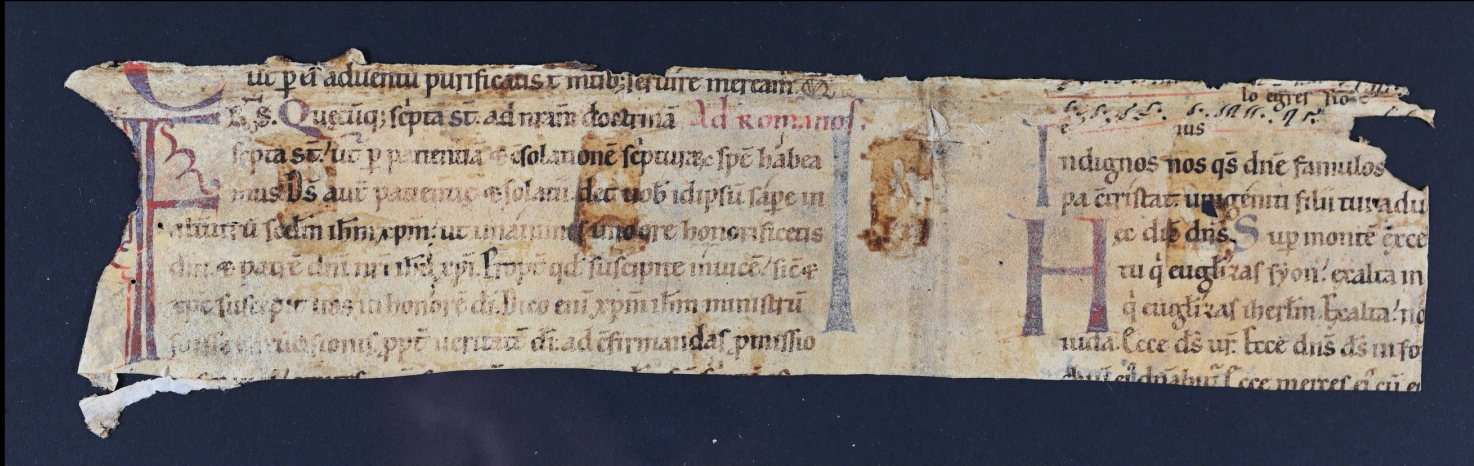 ut p ei aduentū purificatis t mtib; seruire meream
Fr̄s. Quecūq; sc̄pta st̄. ad nr̄am doctrinā Ad Romanos.
sc̄pta st̄. ut p patientiā & c̄solationē sc̄pturaꝝ spē habea
mus. Ds̄ aut̄ patientie & solatii. det uob̄ idipsū sape in
alterutrū sc̄dm ih̄m xp̄m. ut unanimes uno ore honorificetis
dm̄. & patrē dn̄i nr̄i ih̄u xp̄i. Propt̄ qd̄ suscipite inuicē. sic̄ &
xp̄c suscepit uos in honorē di. Dico eni xp̄m ih̄m ministrū
fuisse circūcisionis. ppt̄ ueritatē di. ad c̄firmandas pmissio
lo egres sio e
e ius
Indignos nos qs̄ dn̄e famulos
pa c̄tristat. unigeniti filii tui adu
Hec dic̄ dn̄s. Sup montē exce
tu q̇ eugl̄izas syon. exalta in
q̇ eugl̄izas ih̄erlm̄. Exalta. no
iuda. Ecce ds̄ ur̄. Ecce dn̄s ds̄ in fo
dn̄abit̄. Ecce merces ei cū e